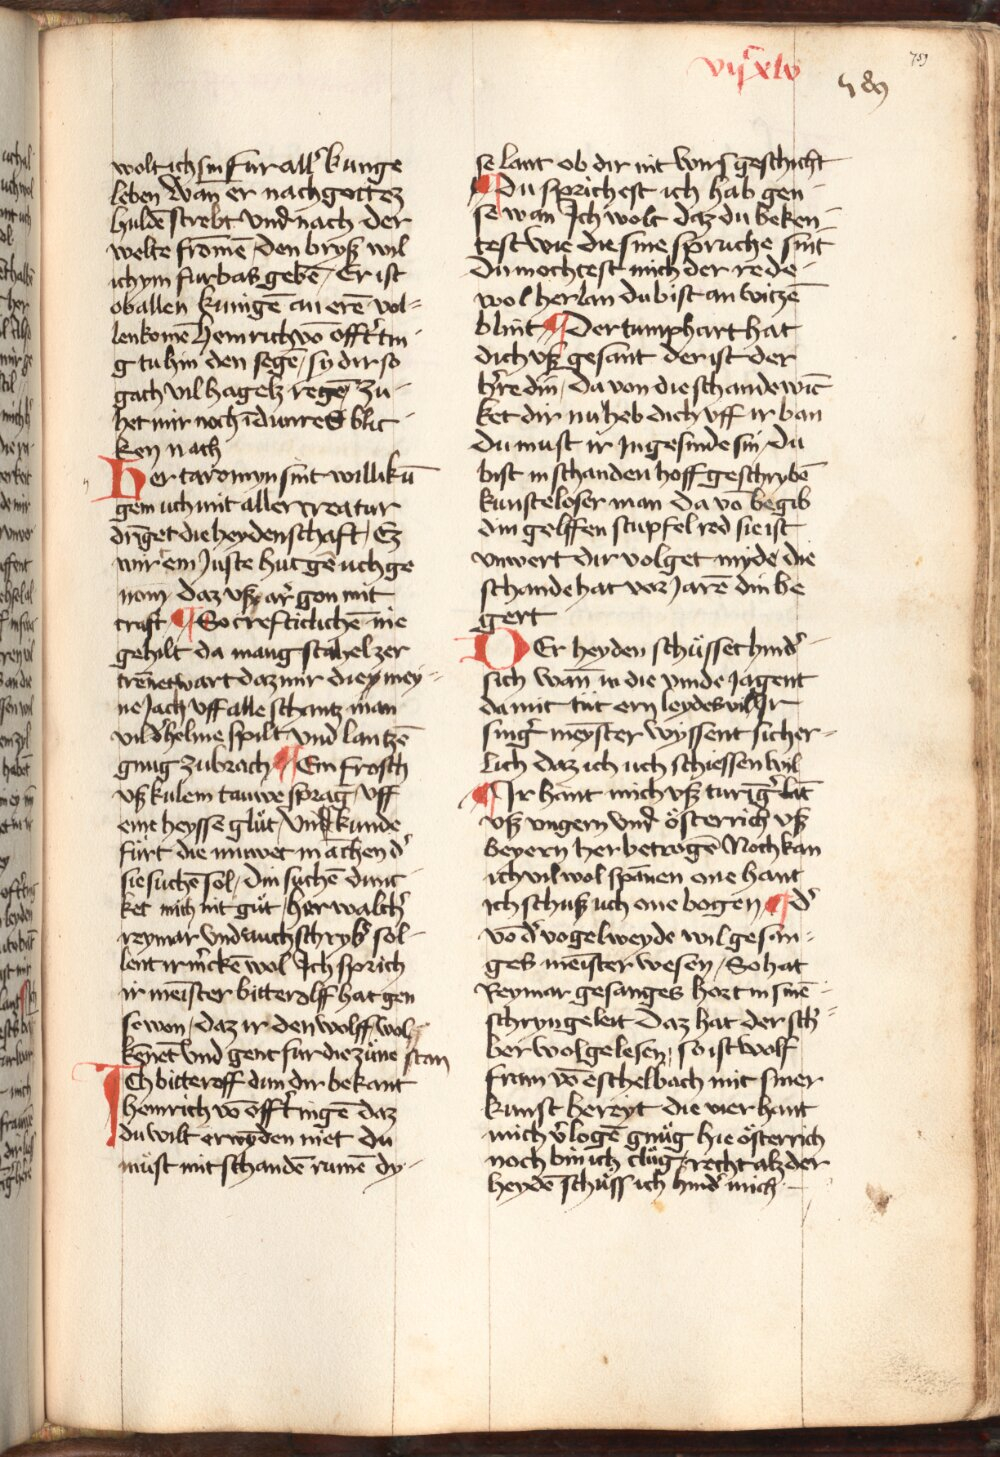 vijᶜxlv
789
759
wolt ich sin fur all's kunge
leben Wan̄ er nach gottez
huldē strebt Vnd nach der
welte fromē / den bryß wil
ich ym furbaß gebē / Er ist
ob allen kunigē an erē vol=
lenkomē Heinrich vō offt'tin
g tu hin den segē / sy dir so
gach vil hagelz regē zu-
het mir noch ī dunres blic
ken nach
Her taromyn sint willikū
gem uch mit aller creatur
drīget die heydenschaft / Ez
wir em Juste hut gē uch ge
nom̄ daz vß ar'gon mit
craft ¶ So crefticlichē nie
gehilt da mang stahel zer
trēnet wart daz mir die ymey=
ne Jach vff alle schantz man
vil d' helme spilt vnd lantzē
gnug zubrach ¶ Ein frosch
vß kulem tauwe sprāg / vff
eine heysse glůt / Vnd kunde
fůrt die nuwet machen d'
sie suchē sol / din suchē dunc-
ket mich nit gůt / her walth'
reymar Vnd auch schryb' sol-
lent ir m'ckē wol Ich sprich
ir meister bitterolff hat gen
se won / daz ir den wolff wol
kēnēt Vnd gent fur die zůne stan
Ich bitteroff dun dir bekant
heinrich vō offt'ingē daz
du wilt erwyden niet du
můst mit schandē rumē dy-
se lant ob dir nit wirs geschicht
¶ Du sprichest ich hab gen-
se wan Ich wolt daz du beken-
test wie die sine spruche sint
Du mochtest mich der rede-
wol herlan du bist an witzē
blint ¶ Der tumphart hat
dich vß gesant der ist der
h're din / da von die schande wic
ket dir nu heb dich vff ir ban
Du must ir Ingesinde sin / du
bist in schanden hoff geschrybē
kunsteloser man da vō begib
din gelffen stupfel red sie ist
vnwert dir volget myde die
schande hat vor Jarē din be
gert
DEr heyden schůsset hind'
sich wan̄ in die vinde Jagent
da mit tůt ern leydes vil Ir
sing' meyster wyssent sicher-
lich daz ich uch schiessen wil
¶ Ir hant mich vß turīg' lāt
vß vngern Vnd österrich vß
beyern her betrogē Noch kan
ich vil wol spānen one hant
ich schuß uch one bogen ¶ d'
vō d' vogelweyde wil gesan-
ges meister wesen / So hat
Reymar gesanges hort in sinē-
schryn geleit Daz hat der sch'
ber wol gelesen / so ist wolf
fram vō eschelbach mit siner
kunst hereyt die vier hant
mich v'logē gnůg hie österrich
noch bin ich clůg / recht alz der
heydē schůss ich hind' mich -